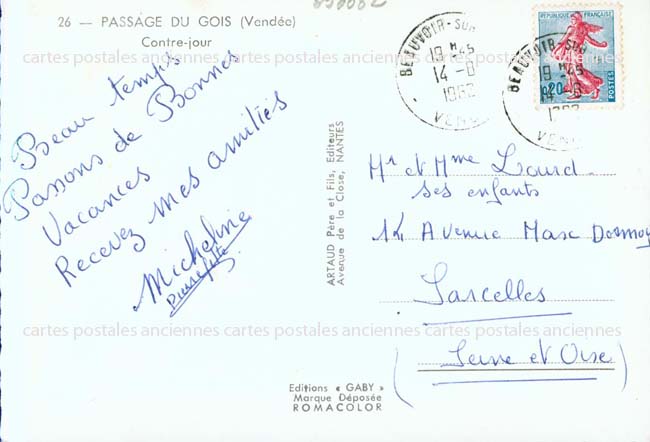 26 — PASSAGE DU GOIS (Vendée)
Contre-jour
Beau temps
Passons de Bonnes
Vacances
Recevez mes amitiés
Micheline
Pierrefitte
ARTAUD Père et Fils, Editeurs
Avenue de la Close, NANTES
Editions « GABY »
Marque Déposée
ROMACOLOR
BEAUVOIR-SUR
19 H 45
14 -8
1962
VEND
BEAUVOIR-SUR
19 H 45
14 -8
VEN
REPUBLIQUE FRANÇAISE
0,20
POSTES
Mr et Mme Lourd
ses enfants
14 Avenue Marx Dormoy
Sarcelles
(Seine et Oise)
cartes postales anciennes cartes postales anciennes cartes postales anciennes
cartes postales anciennes cartes postales anciennes cartes postales anciennes
cartes postales anciennes cartes postales anciennes cartes postales anciennes